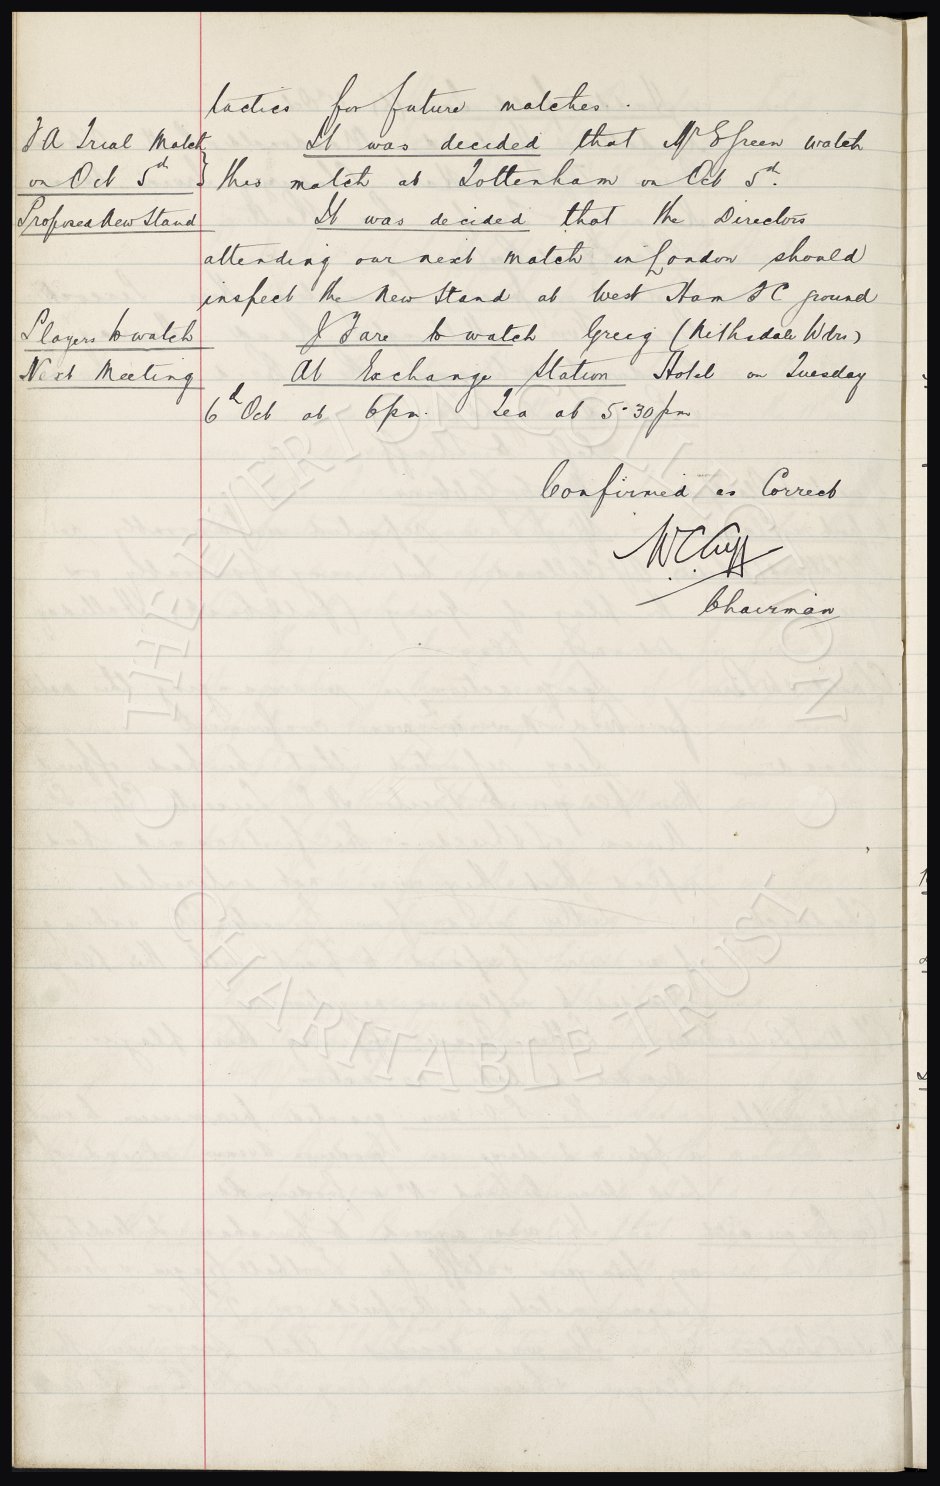 tactics for future matches.
F A Trial Match
on Oct 5th
It was decided that Mr E Green watch
this match at Tottenham on Oct 5th.
Proposed New Stand
It was decided that the Directors
attending our next match in London should
inspect the New Stand at West Ham F C ground
Players to watch
J Fare to watch Greig (Nithsdale Wdrs)
Next Meeting
At Exchange Station Hotel on Tuesday
6th Oct at 6pm. Tea at 5.30pm
Confirmed as Correct
W C Cuff
Chairman
THE EVERTON COLLECTION
CHARITABLE TRUST